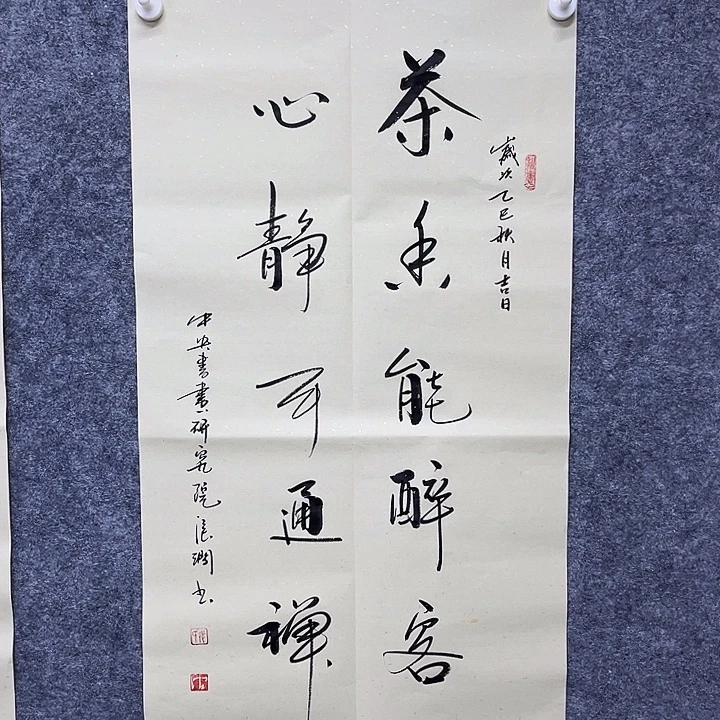 歲次乙巳秋月吉日
茶香能醉客
心静可通禅
中央書畫研究院 书